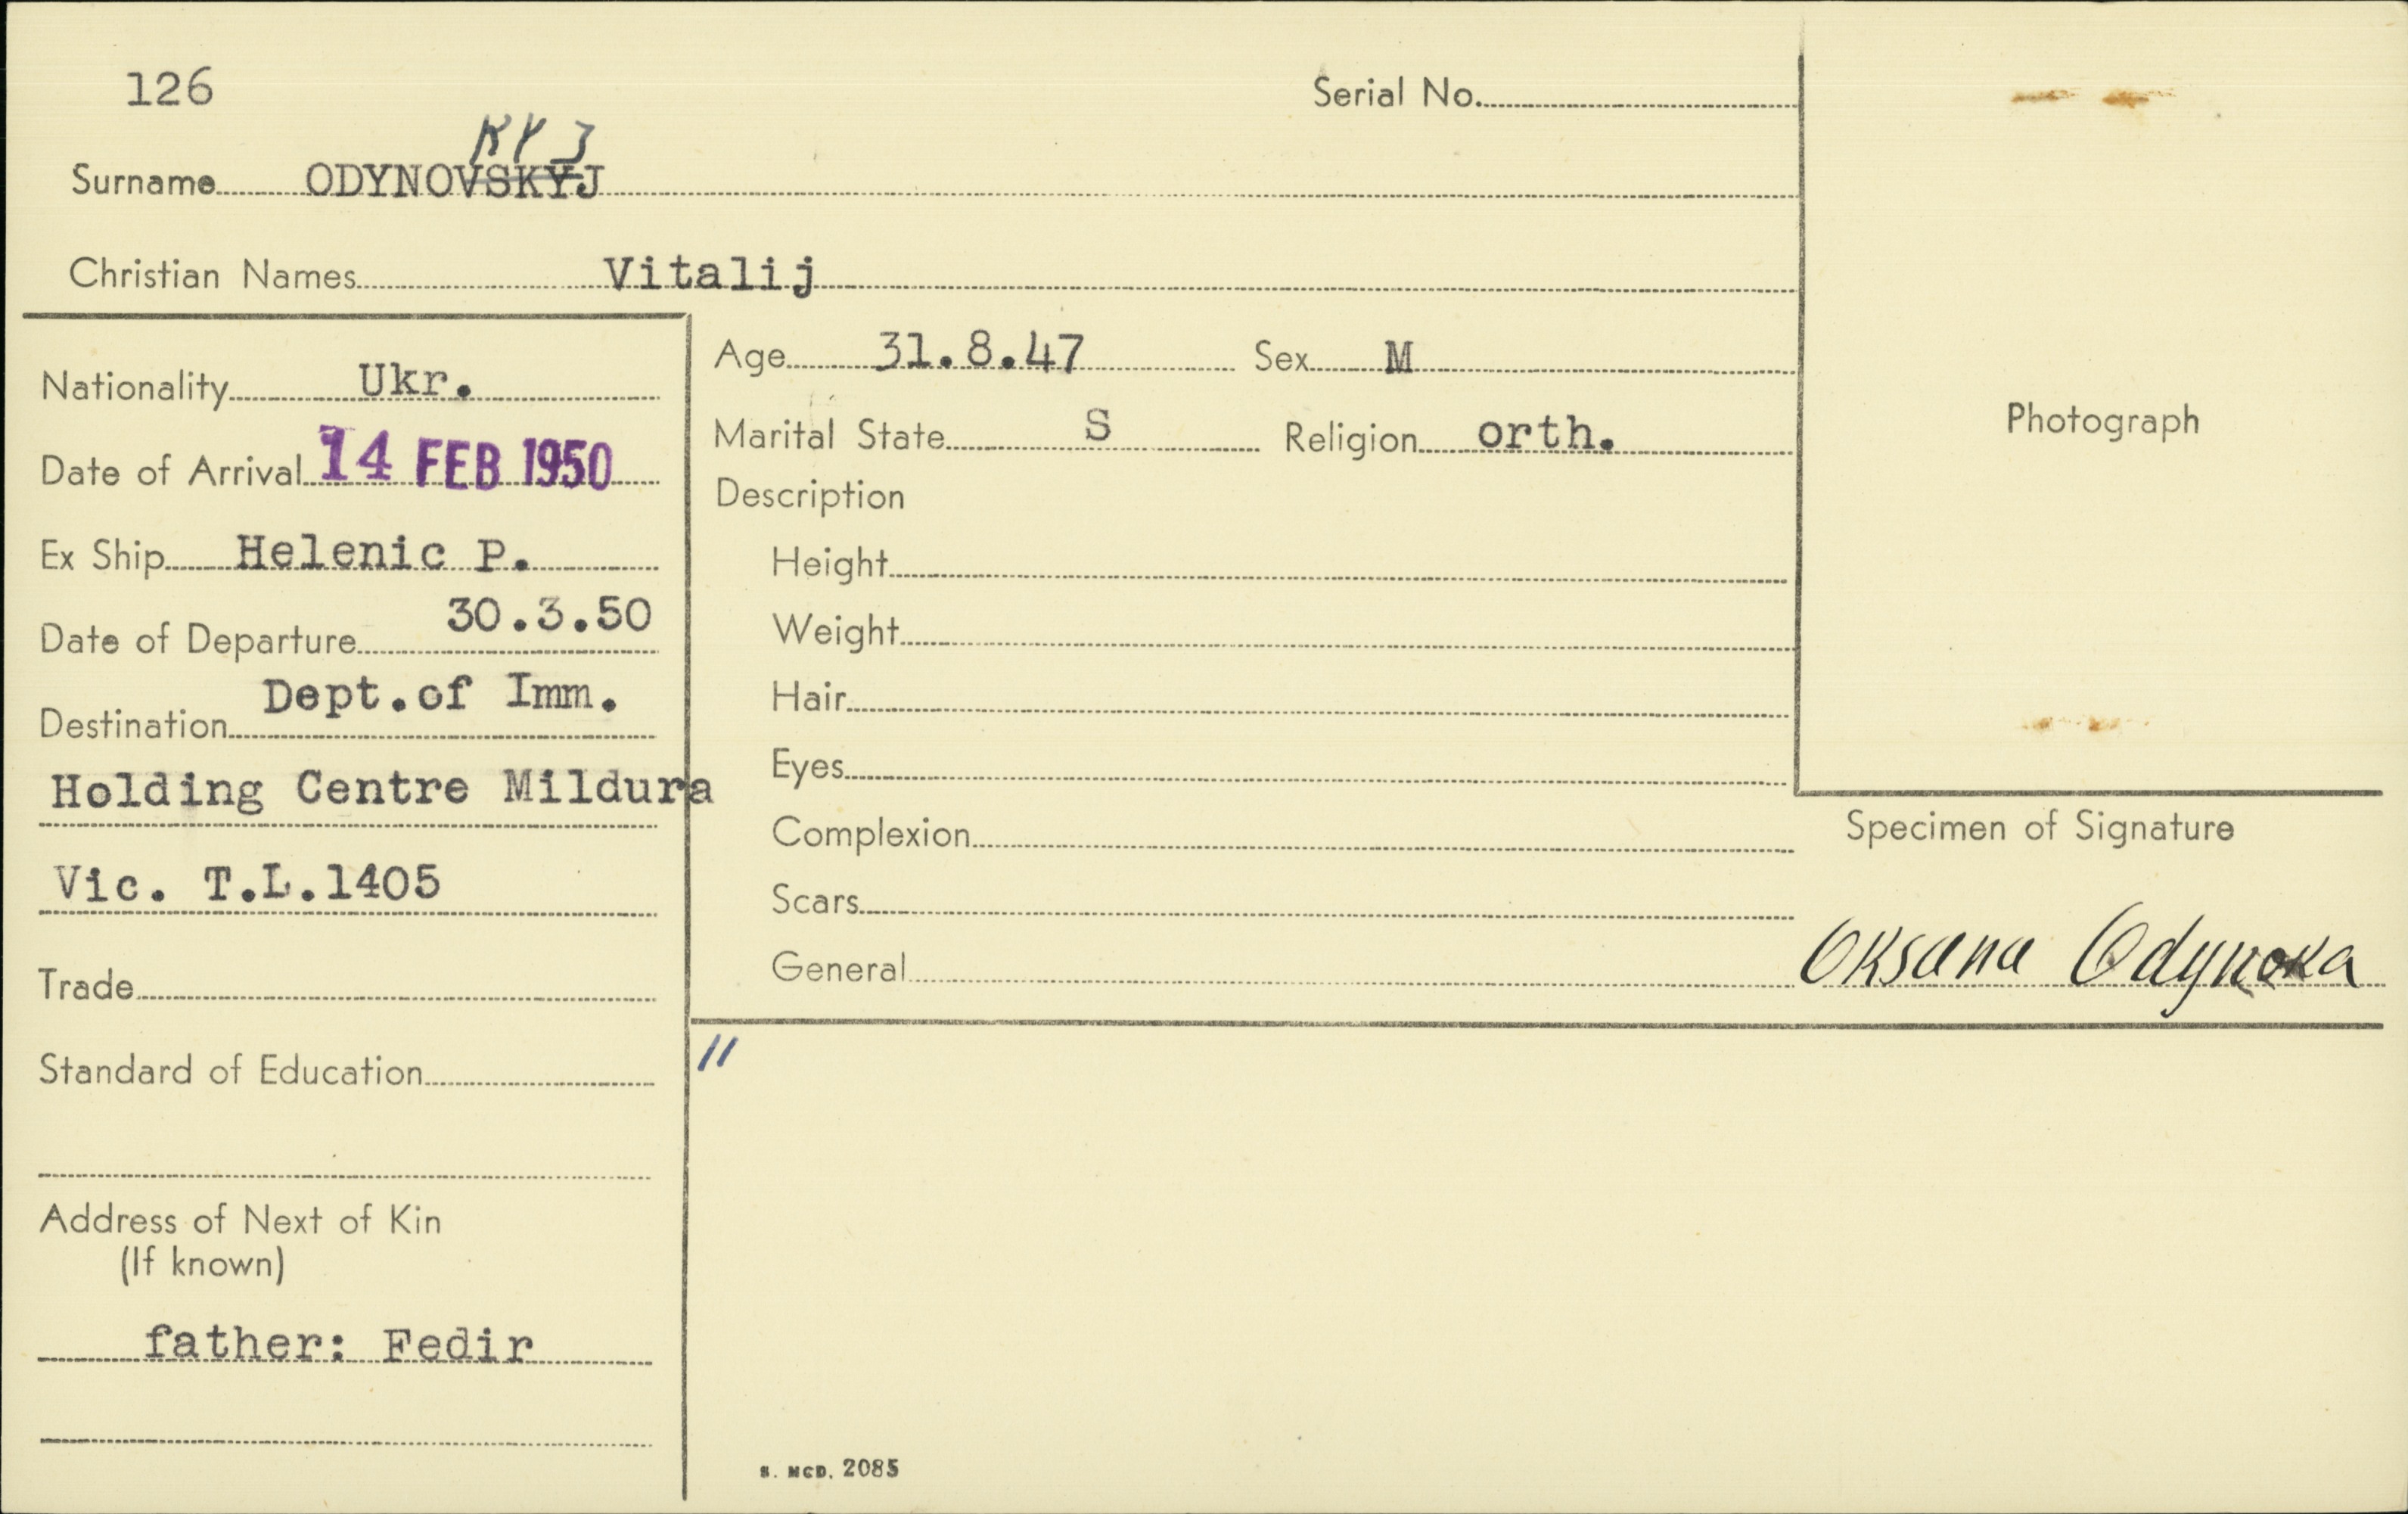 126
Serial No.
KYJ
Surname ODYNOVSKYJ
Christian Names Vitalij
Nationality Ukr.
Date of Arrival 14 FEB 1950
Ex Ship Helenic P.
Date of Departure 30.3.50
Destination Dept.of Imm.
Holding Centre Mildura
Vic. T.L.1405
Trade
Standard of Education
Address of Next of Kin
(If known)
father: Fedir
Age 31.8.47 Sex M
Marital State S Religion orth.
Description
Height
Weight
Hair
Eyes
Complexion
Scars
General
Photograph
Specimen of Signature
Oksana Odynoka
11
S. MCD. 2085